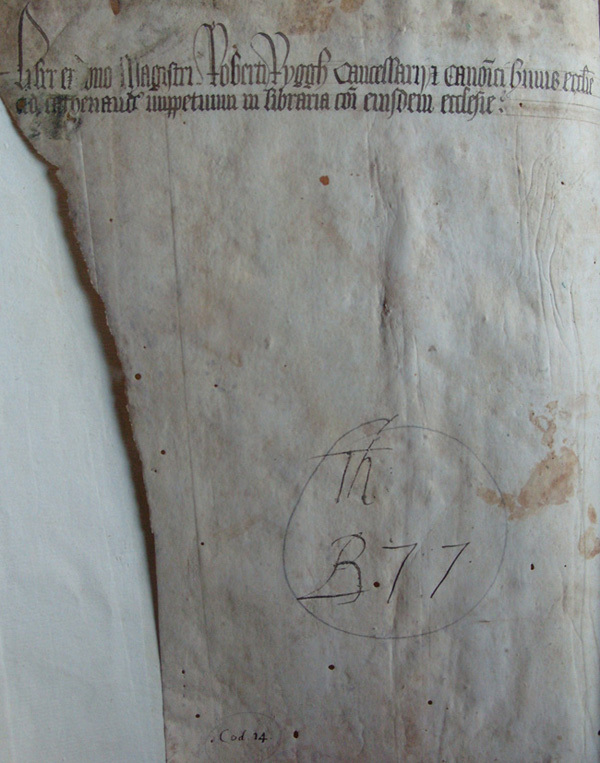 Liber ex dono Magistri Roberti Rygge Cancellarij & canonici huius ecclesie
ad cathenand' imppetuum in libraria coi eiusdem ecclesie :
Th
B. 7 7
. Cod. 14.